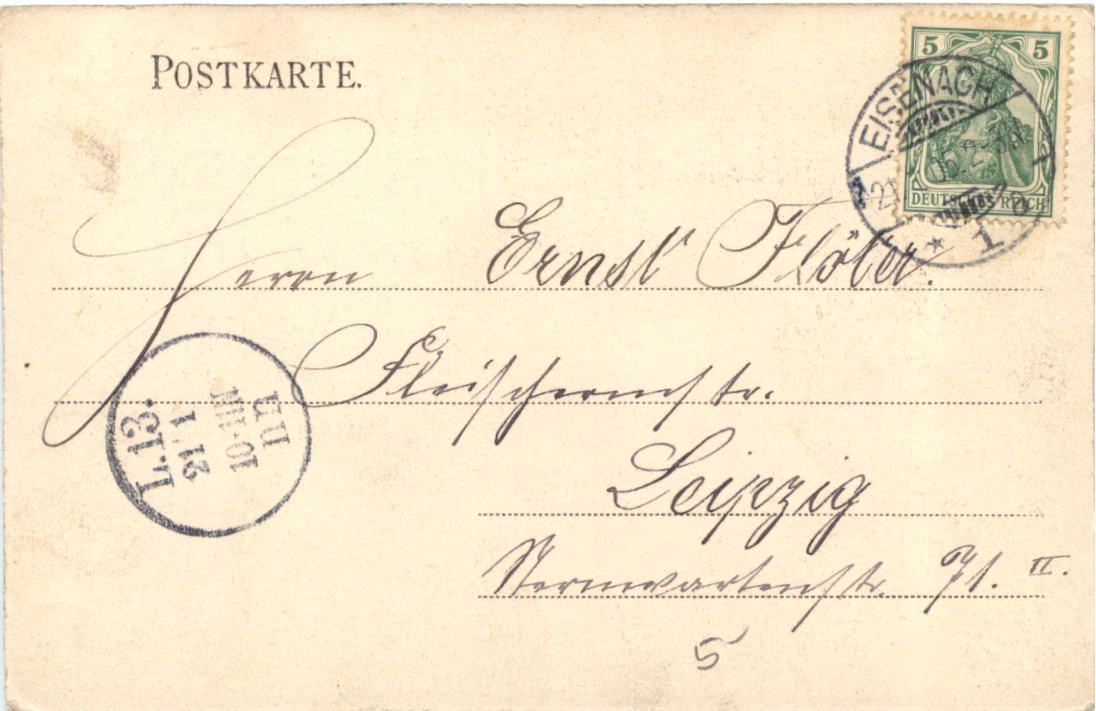 POSTKARTE.
5 5
DEUTSCHES REICH
EISENACH
05. 2-3N.
* 1
Herrn Ernst Flöter.
Fleischermstr.
Leipzig
Sternwartenstr. 71. II.
5
L.13.
21/1
10-11N